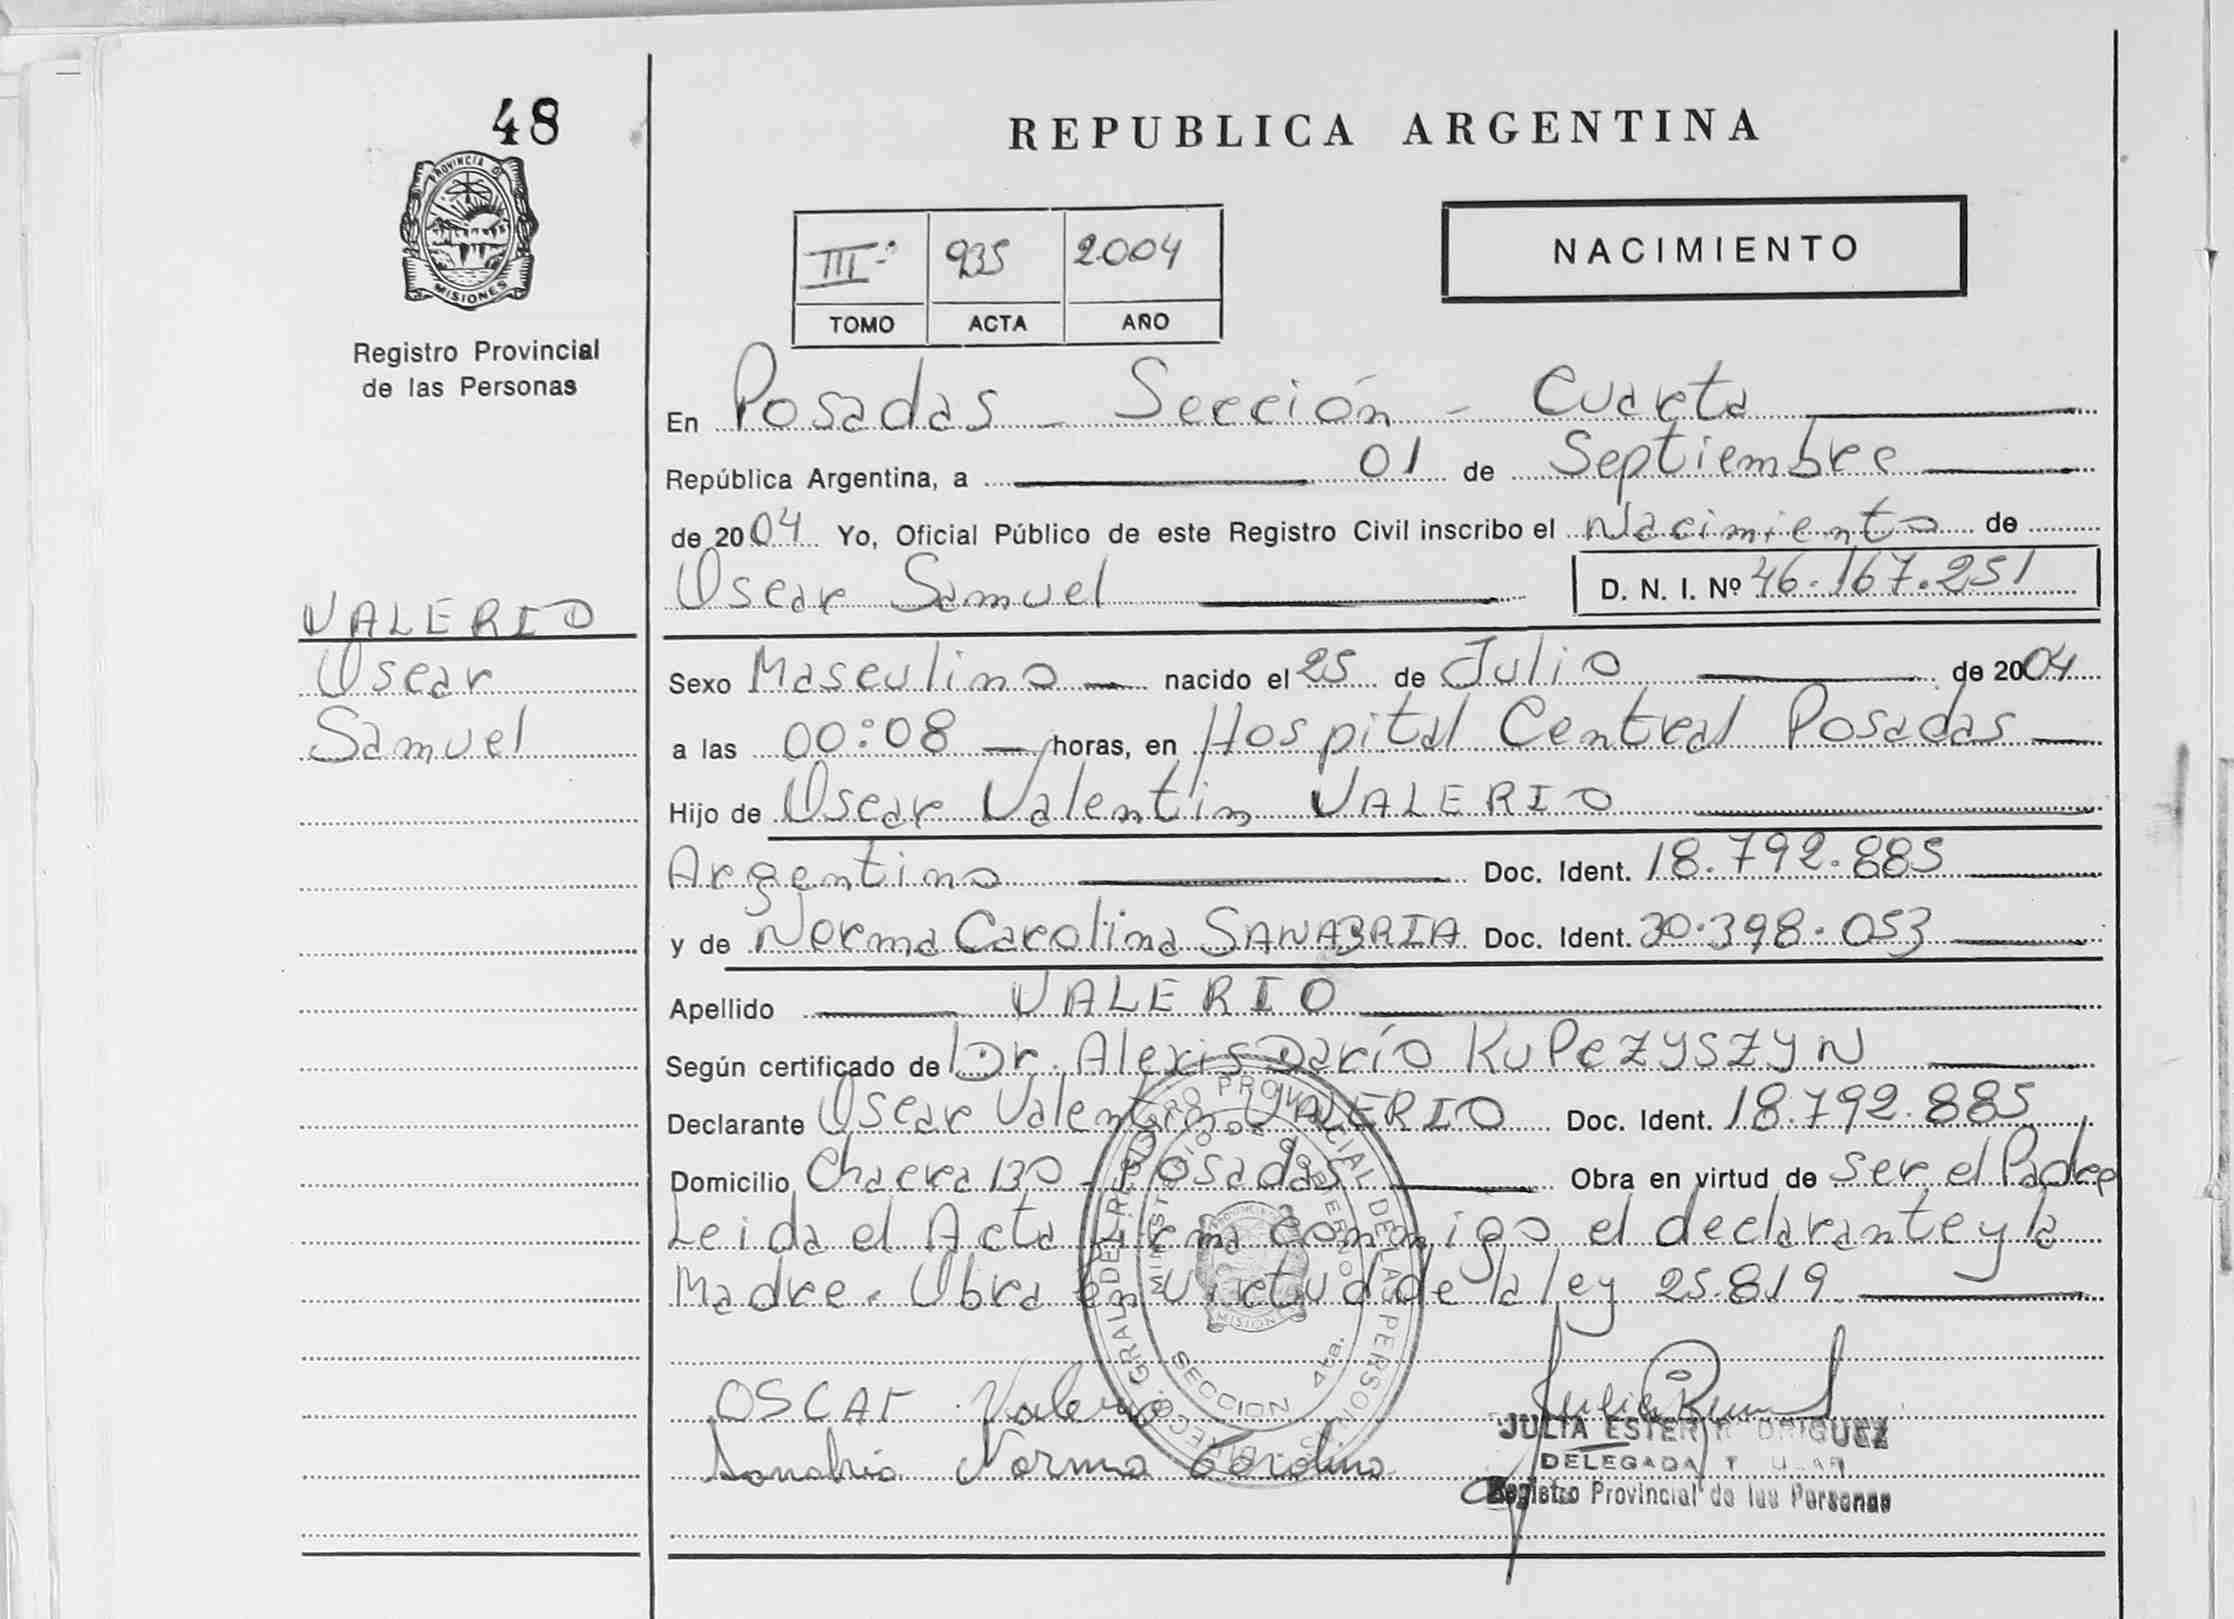 48
REPUBLICA ARGENTINA
PROVINCIA DE
MISIONES
Registro Provincial
de las Personas
III° 935 2004
TOMO ACTA AÑO
NACIMIENTO
En Posadas - Sección - Cuarta
República Argentina, a 01 de Septiembre
de 2004 Yo, Oficial Público de este Registro Civil inscribo el Nacimiento de
Oscar Samuel D. N. I. Nº 46.167.251
VALERIO
Oscar
Samuel
Sexo Masculino nacido el 25 de Julio de 2004
a las 00:08 horas, en Hospital Central Posadas
Hijo de Oscar Valentín VALERIO
Argentino Doc. Ident. 18.792.885
y de Norma Carolina SANABRIA Doc. Ident. 30.398.053
Apellido VALERIO
Según certificado de Dr. Alexis Darío KUPCZYSZYN
Declarante Oscar Valentín VALERIO Doc. Ident. 18.792.885
Domicilio Chacra 130 - Posadas Obra en virtud de ser el Padre
Leida el Acta firma conmigo el declarante y la
Madre. Obra en virtud de la ley 25.819
DIRECC. GRAL. DEL REGISTRO PROVINCIAL DE LAS PERSONAS
MINISTERIO DE GOBIERNO
MISIONES
SECCION 4ta.
OSCAr Valerio
Sanabria Norma Carolina
JULIA ESTER RODRIGUEZ
DELEGADA
Registro Provincial de las Personas